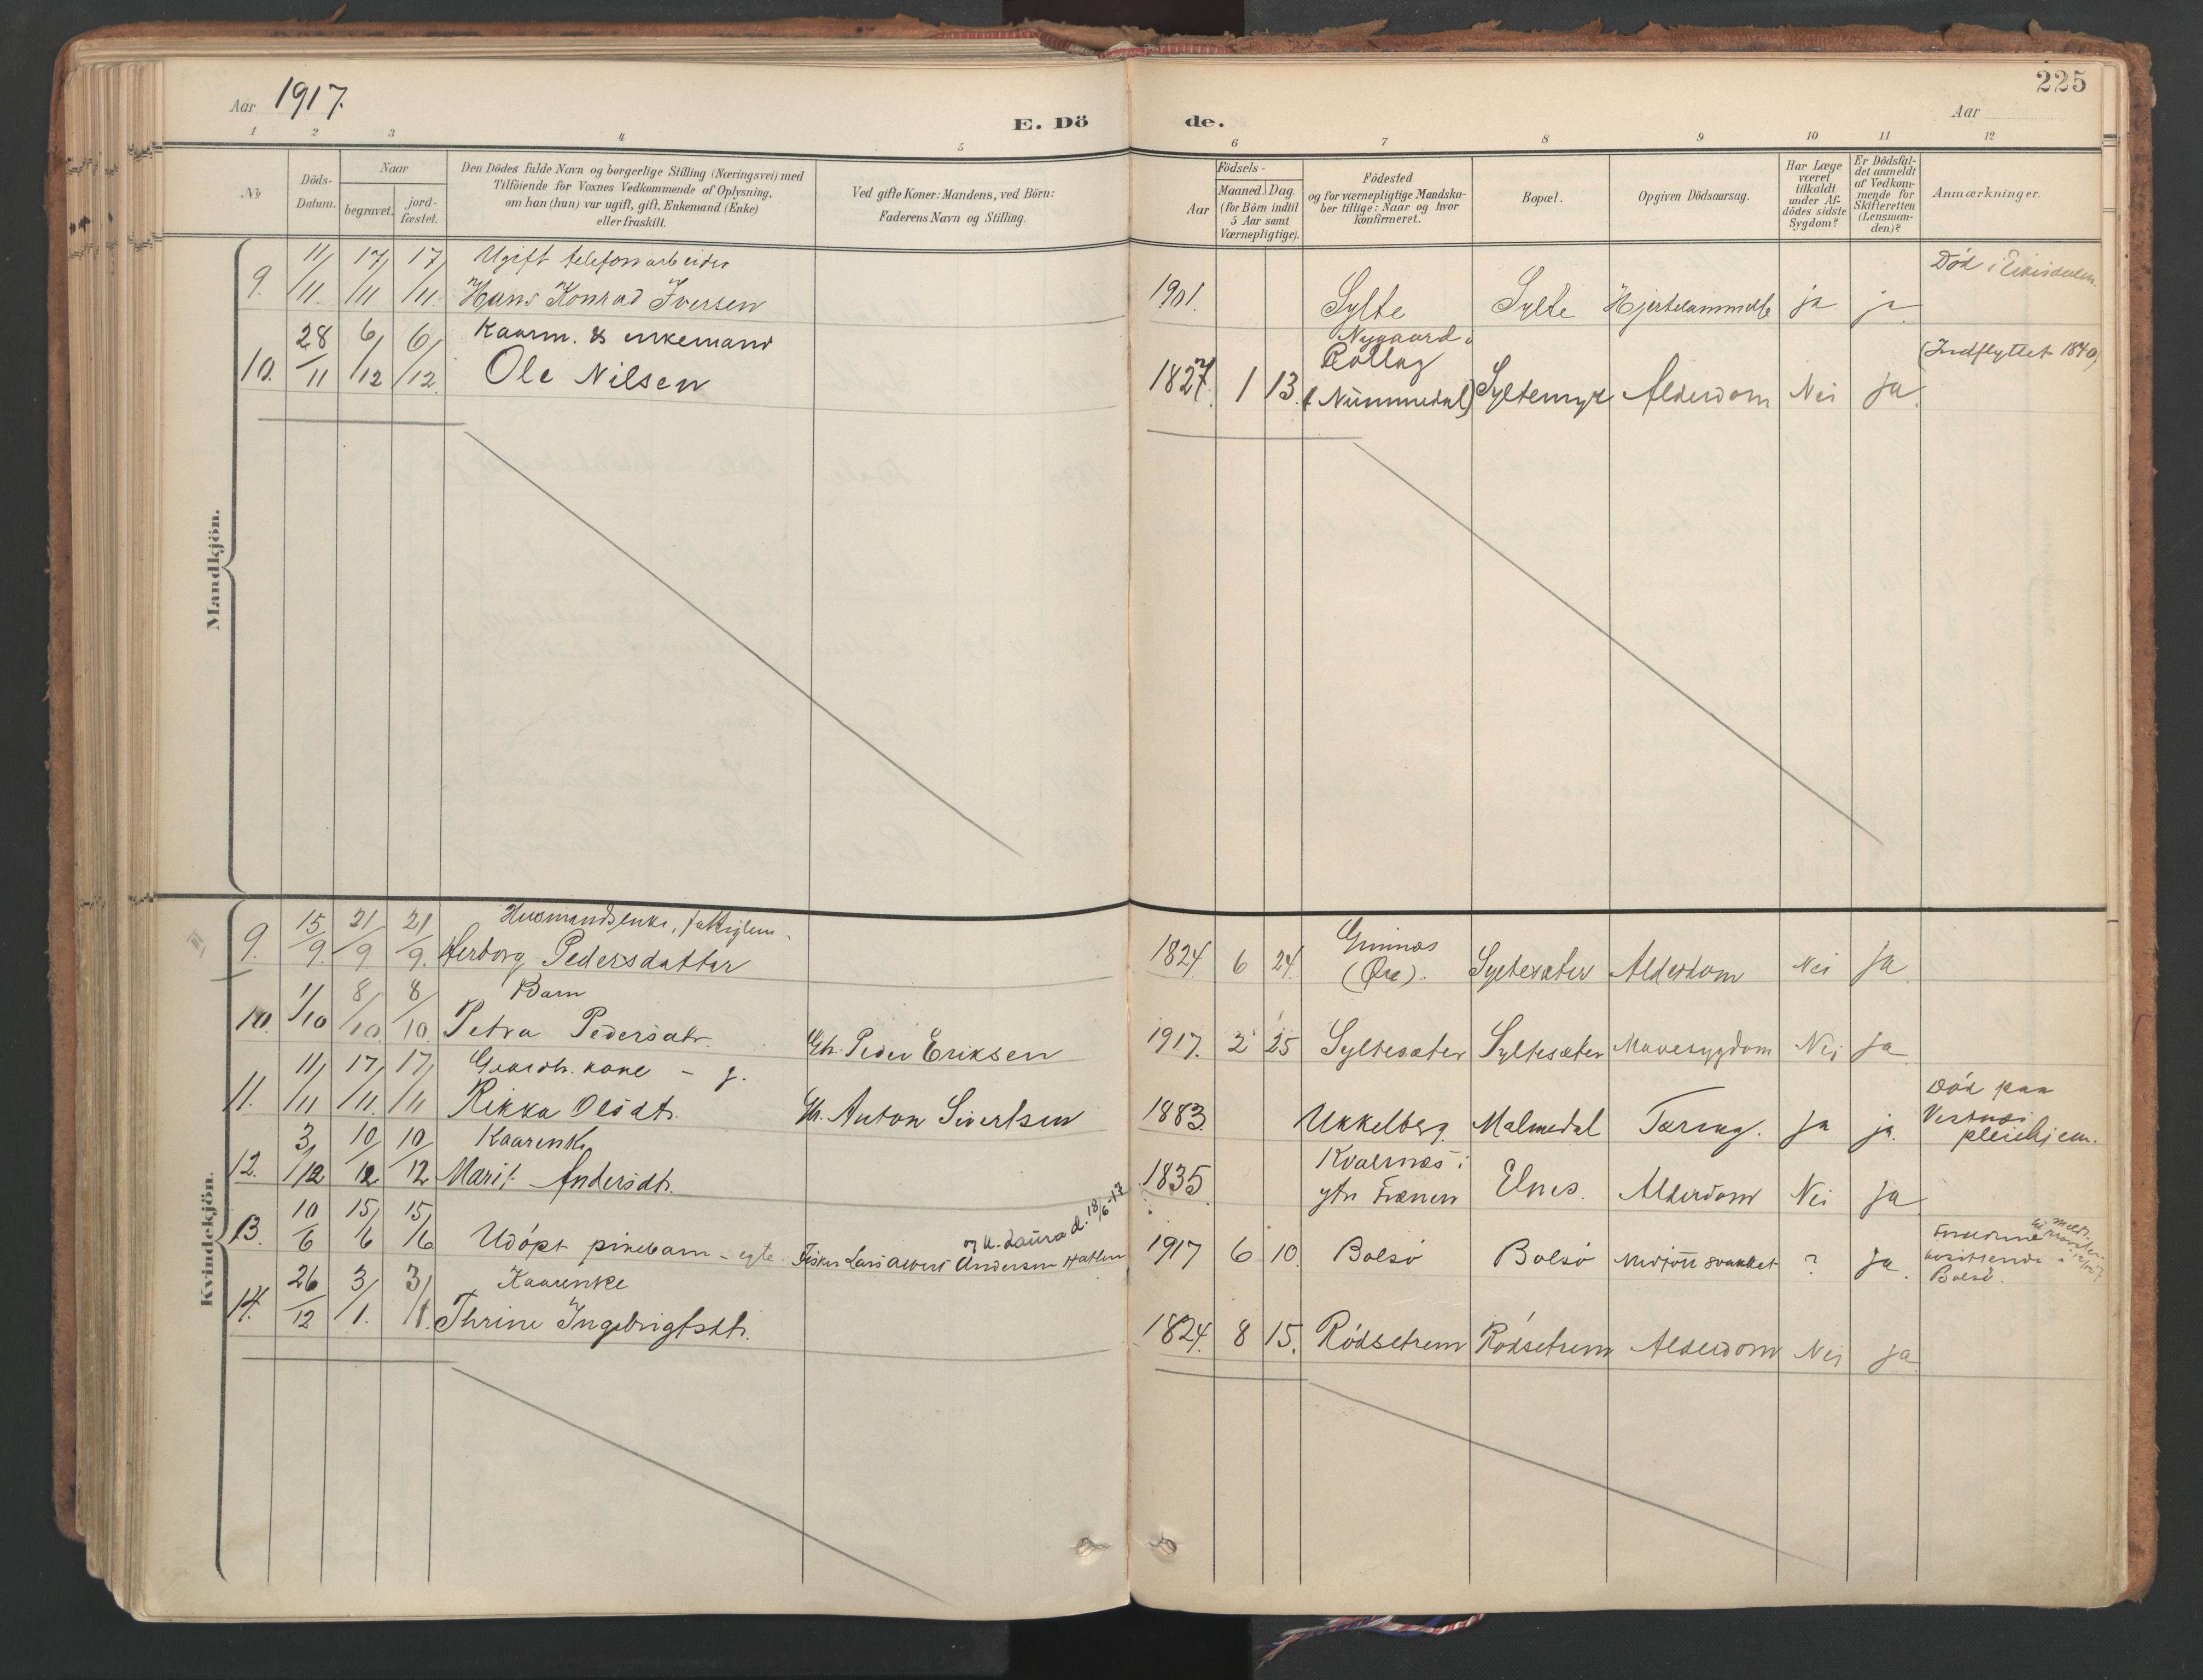 225
Aar 1917.
E. Dö de.
Aar
1 2 3 4 5 6 7 8 9 10 11 12
No
Döds-
Datum.
Naar
begravet.
jord-
fæstet.
Den Dödes fulde Navn og borgerlige Stilling (Næringsvei) med
Tilföiende for Voxnes Vedkommende af Oplysning,
om han (hun) var ugift, gift, Enkemand (Enke)
eller fraskilt.
Ved gifte Koner: Mandens, ved Börn:
Faderens Navn og Stilling.
Födsels-
Aar
Maaned. Dag.
(for Börn indtil
5 Aar samt
Værnepligtige).
Födested
og for værnepligtige Mandska-
ber tillige: Naar og hvor
konfirmeret.
Bopæl.
Opgiven Dödsaarsag.
Har Læge
været
tilkaldt
under Af-
dödes sidste
Sygdom?
Er Dödsfal-
det anmeldt
af Vedkom-
mende for
Skifteretten
(Lensman-
den)?
Anmærkninger.
Mandkjön.
9. 11/11. 17/11 17/11. Ugift telefonarbeider
Hans Konrad Iversen 1901. Sylte Sylte ja ja
Död i Eikisdalen.
10. 28/11 6/12 6/12. Kaarm. & enkemand
Ole Nilsen 1827. 1 13. Nygaard i
Rollag
(Nummedal) Syltemyr Alderdom Nei ja.
(Indflyttet 1840)
Kvindekjön.
9. 15/9. 21/9. 21/9. Husmandsenke,
Herborg Pedersdatter 1824 6 24. Gimnæs
(Øre). Syltesæter Alderdom Nei ja
10. 1/10 8/10 8/10. Barn
Petra Pedersdtr. Gbr. Peder Eriksen 1917. 2 25 Syltesæter Syltesæter Mavesygdom Nei ja
11. 11/11 17/11. 17/11 Gaardbr. kone - g.
Rikka Olsdtr. Gbr. Anton Sivertsen 1883. Ukkelberg. Malmedal Tæring. ja ja.
Död paa
Vestnæs
pleiehjem.
12. 3/12 10/12 10/12 Kaarenke
Marit Andersdtr. 1835 Kvalsnæs i
ytre Frænen Elnes. Alderdom Nei ja
13. 10/6 15/6 15/6 Udöpt pikebarn - egte. Fisker Lars Andersen Hatlen
og h. Laura d. 18/6-17 1917 6 10. Bolsö Bolsö Medfött svakhet ? ja.
Forældrene
bosittende i
Bolsö.
14. 26/12 3/1. 3/1. Kaarenke
Thrine Ingebrigtsdtr. 1824. 8 15. Rödsetrem Rödsetrem Alderdom Nei ja.